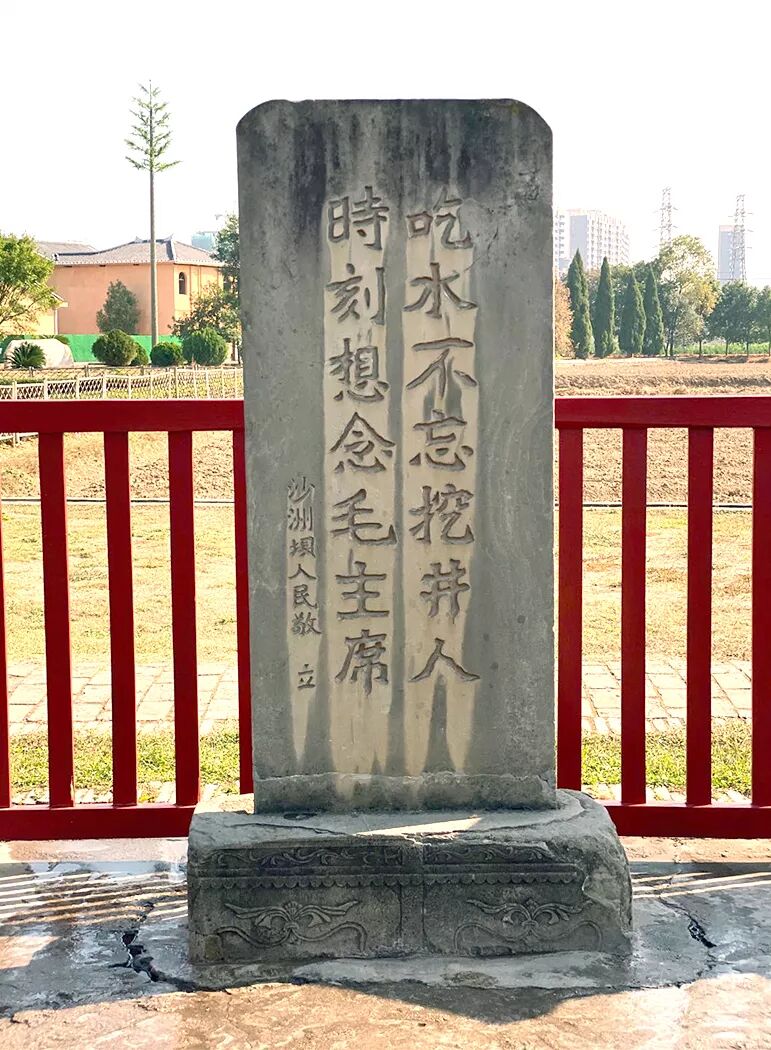 吃水不忘挖井人
時刻想念毛主席
沙洲壩人民敬立